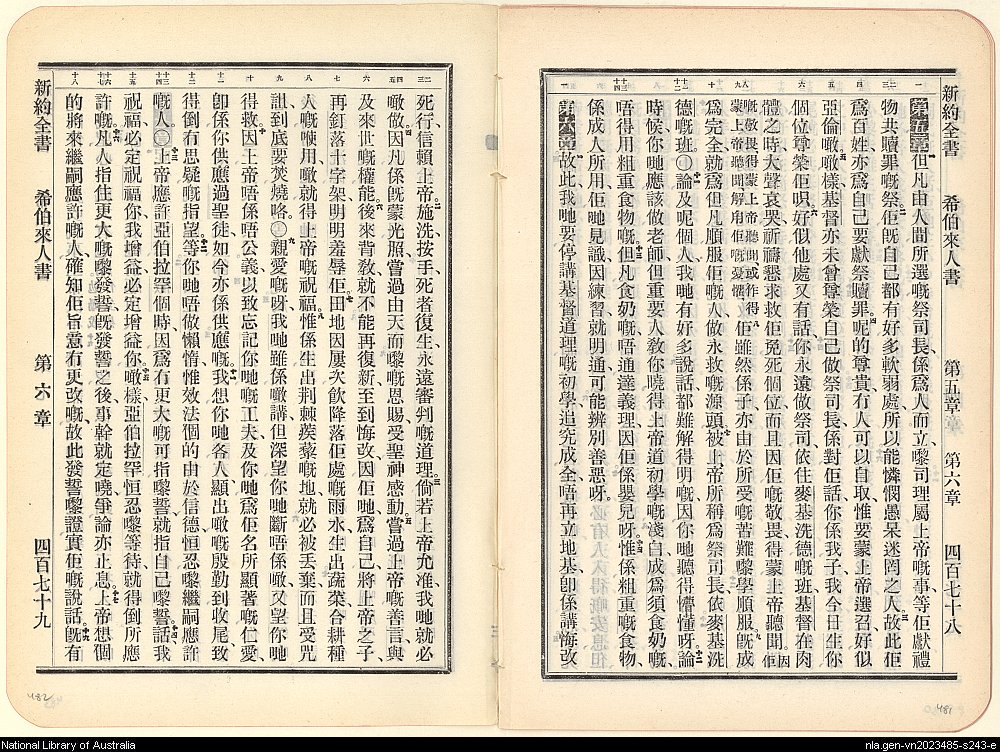 新約全書　希伯來人書　第五章　第六章　四百七十八
第五章 但凡由人間所選嘅祭司長、係爲人而立嚟司理屬上帝嘅事、等佢獻禮
物共贖罪嘅祭、佢旣自己都有好多軟弱處、所以能憐憫愚呆迷罔之人、故此佢
爲百姓、亦爲自己要獻祭贖罪、呢的尊貴冇人可以自取、惟要蒙上帝選召好似
亞倫噉、噉樣基督亦未曾尊榮自己做祭司長、係對佢話你係我子、我今日生你
個位尊榮佢啫、好似他處又有話、你永遠做祭司、依住麥基洗德嘅班、基督在肉
體之時、大聲哀哭祈禱懇求救佢免死個位、而且因佢嘅敬畏得蒙上帝聽聞、因佢
嘅敬畏得蒙上帝聽聞或作得蒙上帝聽聞解甪佢嘅憂懼佢雖然係子、亦由於所受嘅苦難嚟學順服、旣成
爲完全、就爲但凡順服佢嘅人做永救嘅源頭、被上帝所稱爲祭司長、依麥基洗
德嘅班、〇論及呢個人我哋有好多說話、都難解得明、因你哋聽得懵懂呀、論
時候、你哋應該做老師、但重要人教你曉得上帝道初學嘅淺白、成爲須食奶嘅、
唔得用粗重食物嘅、但凡食奶嘅、唔通達義理、因佢係嬰兒呀、惟係粗重嘅食物、
係成人所用、佢哋見識因練習就明通、可能辨別善惡呀。
第六章 故此、我哋要停講基督道理嘅初學、追究成全、唔再立地基、卽係講悔改
死行、信賴上帝、施洗、按手、死者復生、永遠審判嘅道理、倘若上帝允准、我哋就必
噉做、因凡係旣蒙光照、嘗過由天而嚟嘅恩賜、受聖神感動、嘗過上帝嘅善言與
及來世嘅權能、後來背敎、就不能再復新至到悔改、因佢哋爲自己將上帝之子
再釘落十字架、明明羞辱佢、田地因屢次飲降落佢處嘅雨水、生出蔬菜合耕種
人嘅啱用噉、就得上帝嘅祝福、惟係生出荆棘蒺藜嘅地、就必被丟棄、而且受咒
詛、到底要焚燒咯、〇親愛嘅呀、我哋雖係噉講、但深望你哋斷唔係噉、又望你哋
得救、因上帝唔係唔公義、以致忘記你哋嘅工夫、及你哋爲佢名所顯著嘅仁愛、
卽係你供應過聖徒、如今亦係供應嘅、我想你哋各人顯出噉嘅殷勤到收尾、致
得倒冇思疑嘅指望、等你哋唔做懶惰、惟效法個的由於信德恒忍嚟繼嗣應許
嘅人、〇上帝應許亞伯拉罕個時、因爲冇更大嘅可指嚟誓、就指自己嚟誓、話我
祝福、必定祝福你、我增益、必定增益你、噉樣、亞伯拉罕恒忍嚟等待、就得倒所應
許嘅、凡人指住更大嘅嚟發誓、旣發誓之後、事幹就定曉、爭論亦止息、上帝想個
的將來繼嗣應許嘅人、確知佢旨意冇更改嘅、故此發誓嚟證實佢嘅說話、旣有
新約全書　希伯來人書　第六章　四百七十九
482
481
National Library of Australia
nla.gen-vn2023485-s243-e